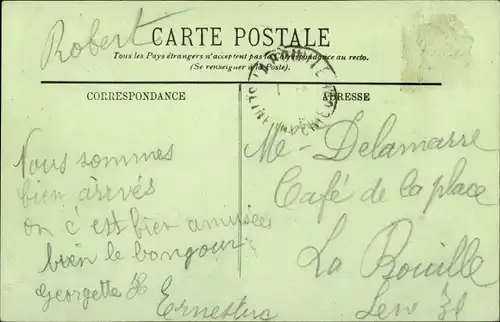 Robert
CARTE POSTALE
Tous les Pays étrangers n'acceptent pas la Correspondance au recto.
(Se renseigner à la Poste).
CORRESPONDANCE
ADRESSE
Nous sommes
bien arrivés
on c'est bien amusées
bien le bongour
Georgette
Me - Delamarre
Café de la place
La Bouille